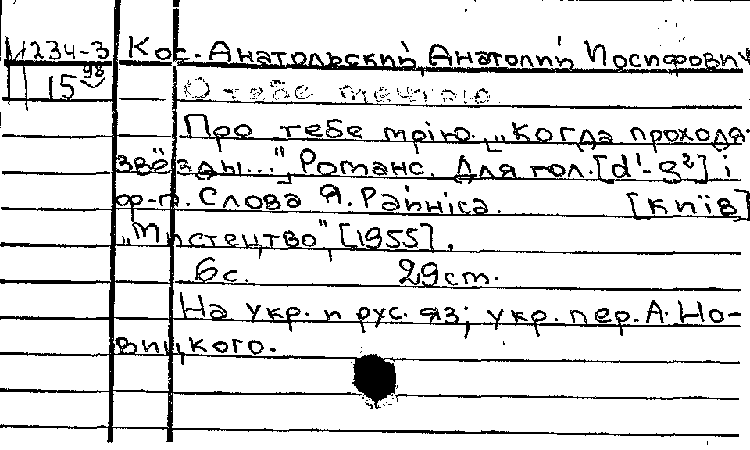 М 234-3 Кос-Анатольский, Анатолий Иосифович
15 98 О тебе мечтаю
Про тебе мрію. „Когда проходя
звёзды...", Романс. Для гол. [d¹-g²] і
ф-п. Слова Я. Райніса. [Київ]
„Мистецтво", [1955].
6с. 29 cm.
На укр. и рус. яз; укр. пер. А. Но-
вицкого.